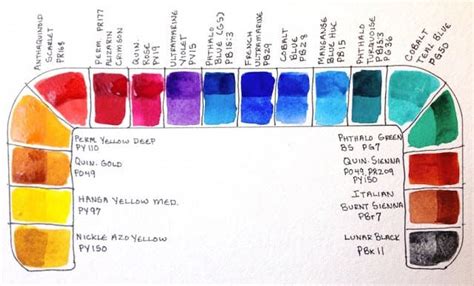 ANTHAQUINOID
SCARLET
PR168
PERM PR177
ALIZARIN
CRIMSON
QUIN.
ROSE
PV19
ULTRAMARINE
VIOLET
PV15
PHTHALO
BLUE (GS)
PB15:3
FRENCH
ULTRAMARINE
PB29
COBALT
BLUE
PB28
MANGANESE
BLUE HUE
PB15
PHTHALO
TURQUOISE
PB15:3
PG36
COBALT
TEAL BLUE
PG50
PERM YELLOW DEEP
PY110
QUIN. GOLD
PO49
HANSA YELLOW MED.
PY97
NICKLE AZO YELLOW
PY150
PHTHALO GREEN
BS PG7
QUIN. SIENNA
PO49, PR209
PY150
ITALIAN
BURNT SIENNA
PBr7
LUNAR BLACK
PBk11